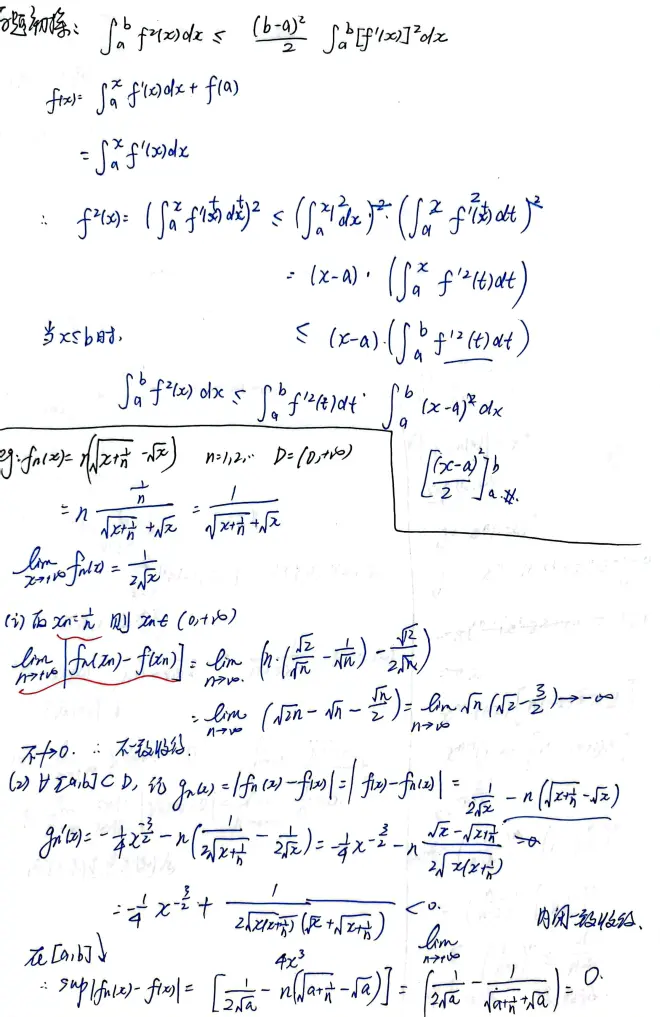 ∫_a^b f²(x)dx ≤ (b-a)²/2 ∫_a^b [f'(x)]²dx
f(x) = ∫_a^x f'(x)dx + f(a)
= ∫_a^x f'(x)dx
∴ f²(x) = (∫_a^x f'(t)dt)² ≤ (∫_a^x 1²dx)·(∫_a^x f'²(t)dt)
= (x-a)·(∫_a^x f'²(t)dt)
当x≤b时, ≤ (x-a)·(∫_a^b f'²(t)dt)
∫_a^b f²(x)dx ≤ ∫_a^b f'²(t)dt · ∫_a^b (x-a)dx
[(x-a)²/2]_a^b
eg: fn(x) = n(√(x+1/n) - √x) n=1,2,… D=(0,+∞)
= n (1/n)/(√(x+1/n)+√x) = 1/(√(x+1/n)+√x)
lim_{x→+∞} fn(x) = 1/(2√x)
(i) 而 xn=1/n 则 xn∈(0,+∞)
lim_{n→+∞} |fn(xn) - f(xn)| = lim_{n→∞} (n·(√2/√n - 1/√n) - √2/(2√n))
= lim_{n→∞} (√2n - √n - √n/2) = lim_{n→∞} √n(√2 - 3/2) → -∞
不→0. ∴ 不一致收敛.
(2) ∀[a,b]⊂D, 记 gn(x) = |fn(x)-f(x)| = |f(x)-fn(x)| = 1/(2√x) - n(√(x+1/n) - √x)
gn'(x) = -1/4 x^(-3/2) - n(1/(2√(x+1/n)) - 1/(2√x)) = -1/4 x^(-3/2) - n (√x - √(x+1/n))/(2√(x(x+1/n))) →0
= -1/4 x^(-3/2) + 1/(2√(x(x+1/n)) (√x+√(x+1/n))) < 0. 内闭一致收敛.
4x³
在[a,b]↓
∴ sup|fn(x)-f(x)| = [1/(2√a) - n(√(a+1/n) - √a)] = lim_{n→+∞} (1/(2√a) - 1/(√(a+1/n)+√a)) = 0.